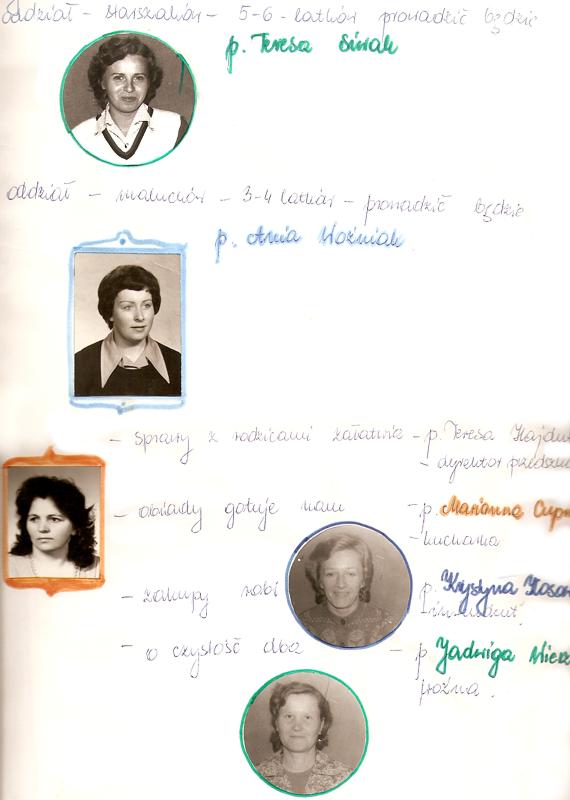 oddział - starszaków - 5-6 - latków prowadzić będzie
p. Teresa Siwak
oddział - maluchów - 3-4 latków - prowadzić będzie
p. Ania Woźniak
- sprawy z rodzicami załatwia - p. Teresa Hajdu
- dyrektor przedszk
- obiady gotuje nam - p. Marianna Cup
- kucharka
- zakupy robi p. Krystyna Kosow
intendent.
- o czystość dba - p Jadwiga Wierz
woźna.